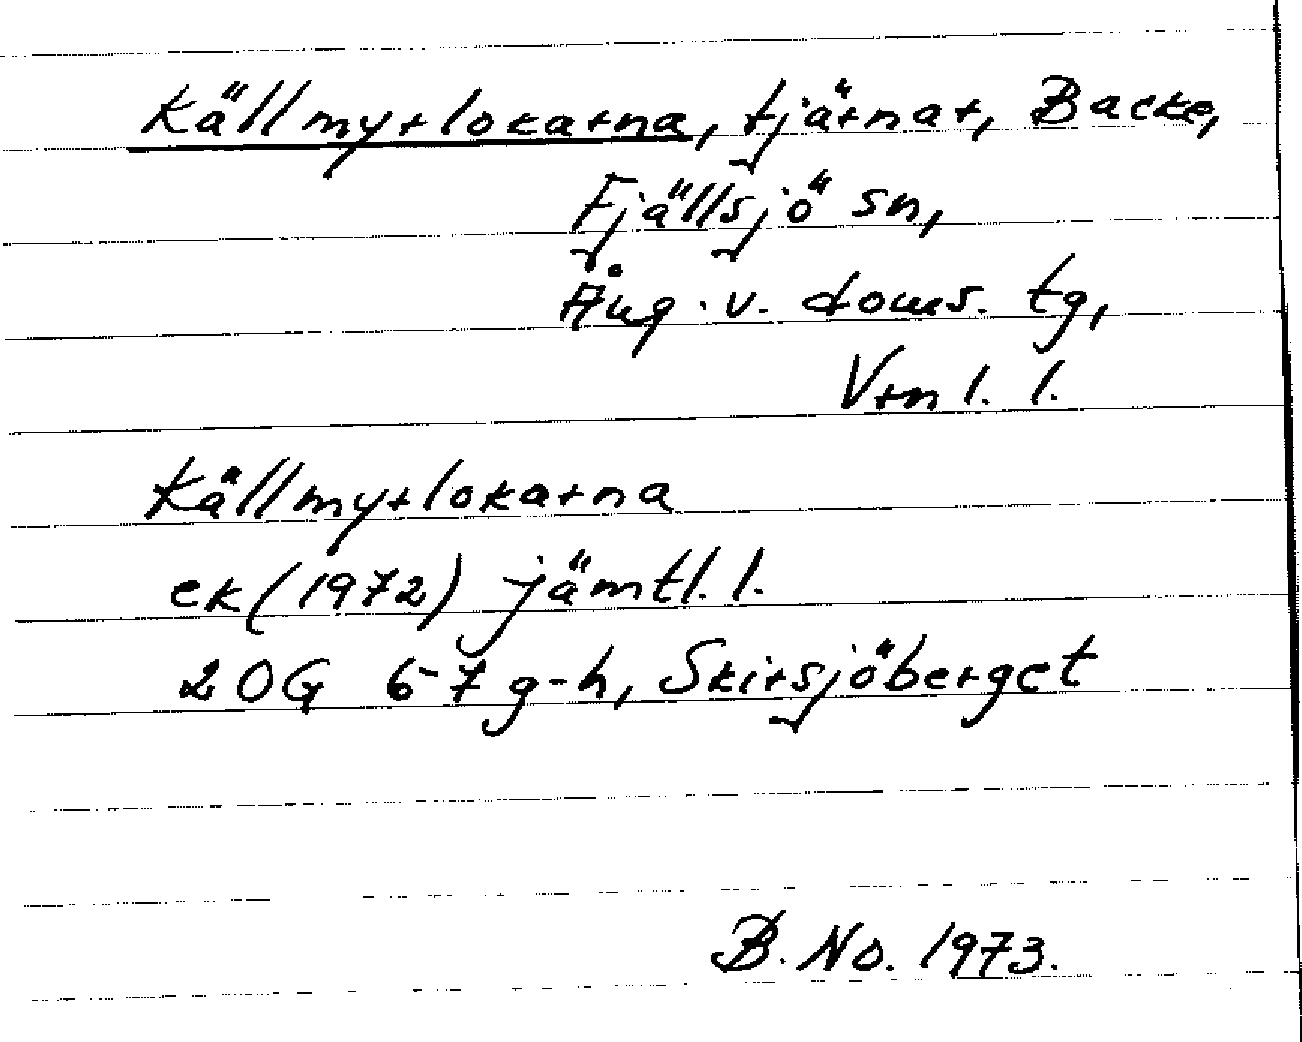 Källmyrlokarna, tjärnar, Backe,
Fjällsjö sn,
Ång. v. doms. tg,
Vrnl. l.
Källmyrlokarna
ek (1972) jämtl. l.
20G 6-7 g-h, Skirsjöberget
B. No. 1973.